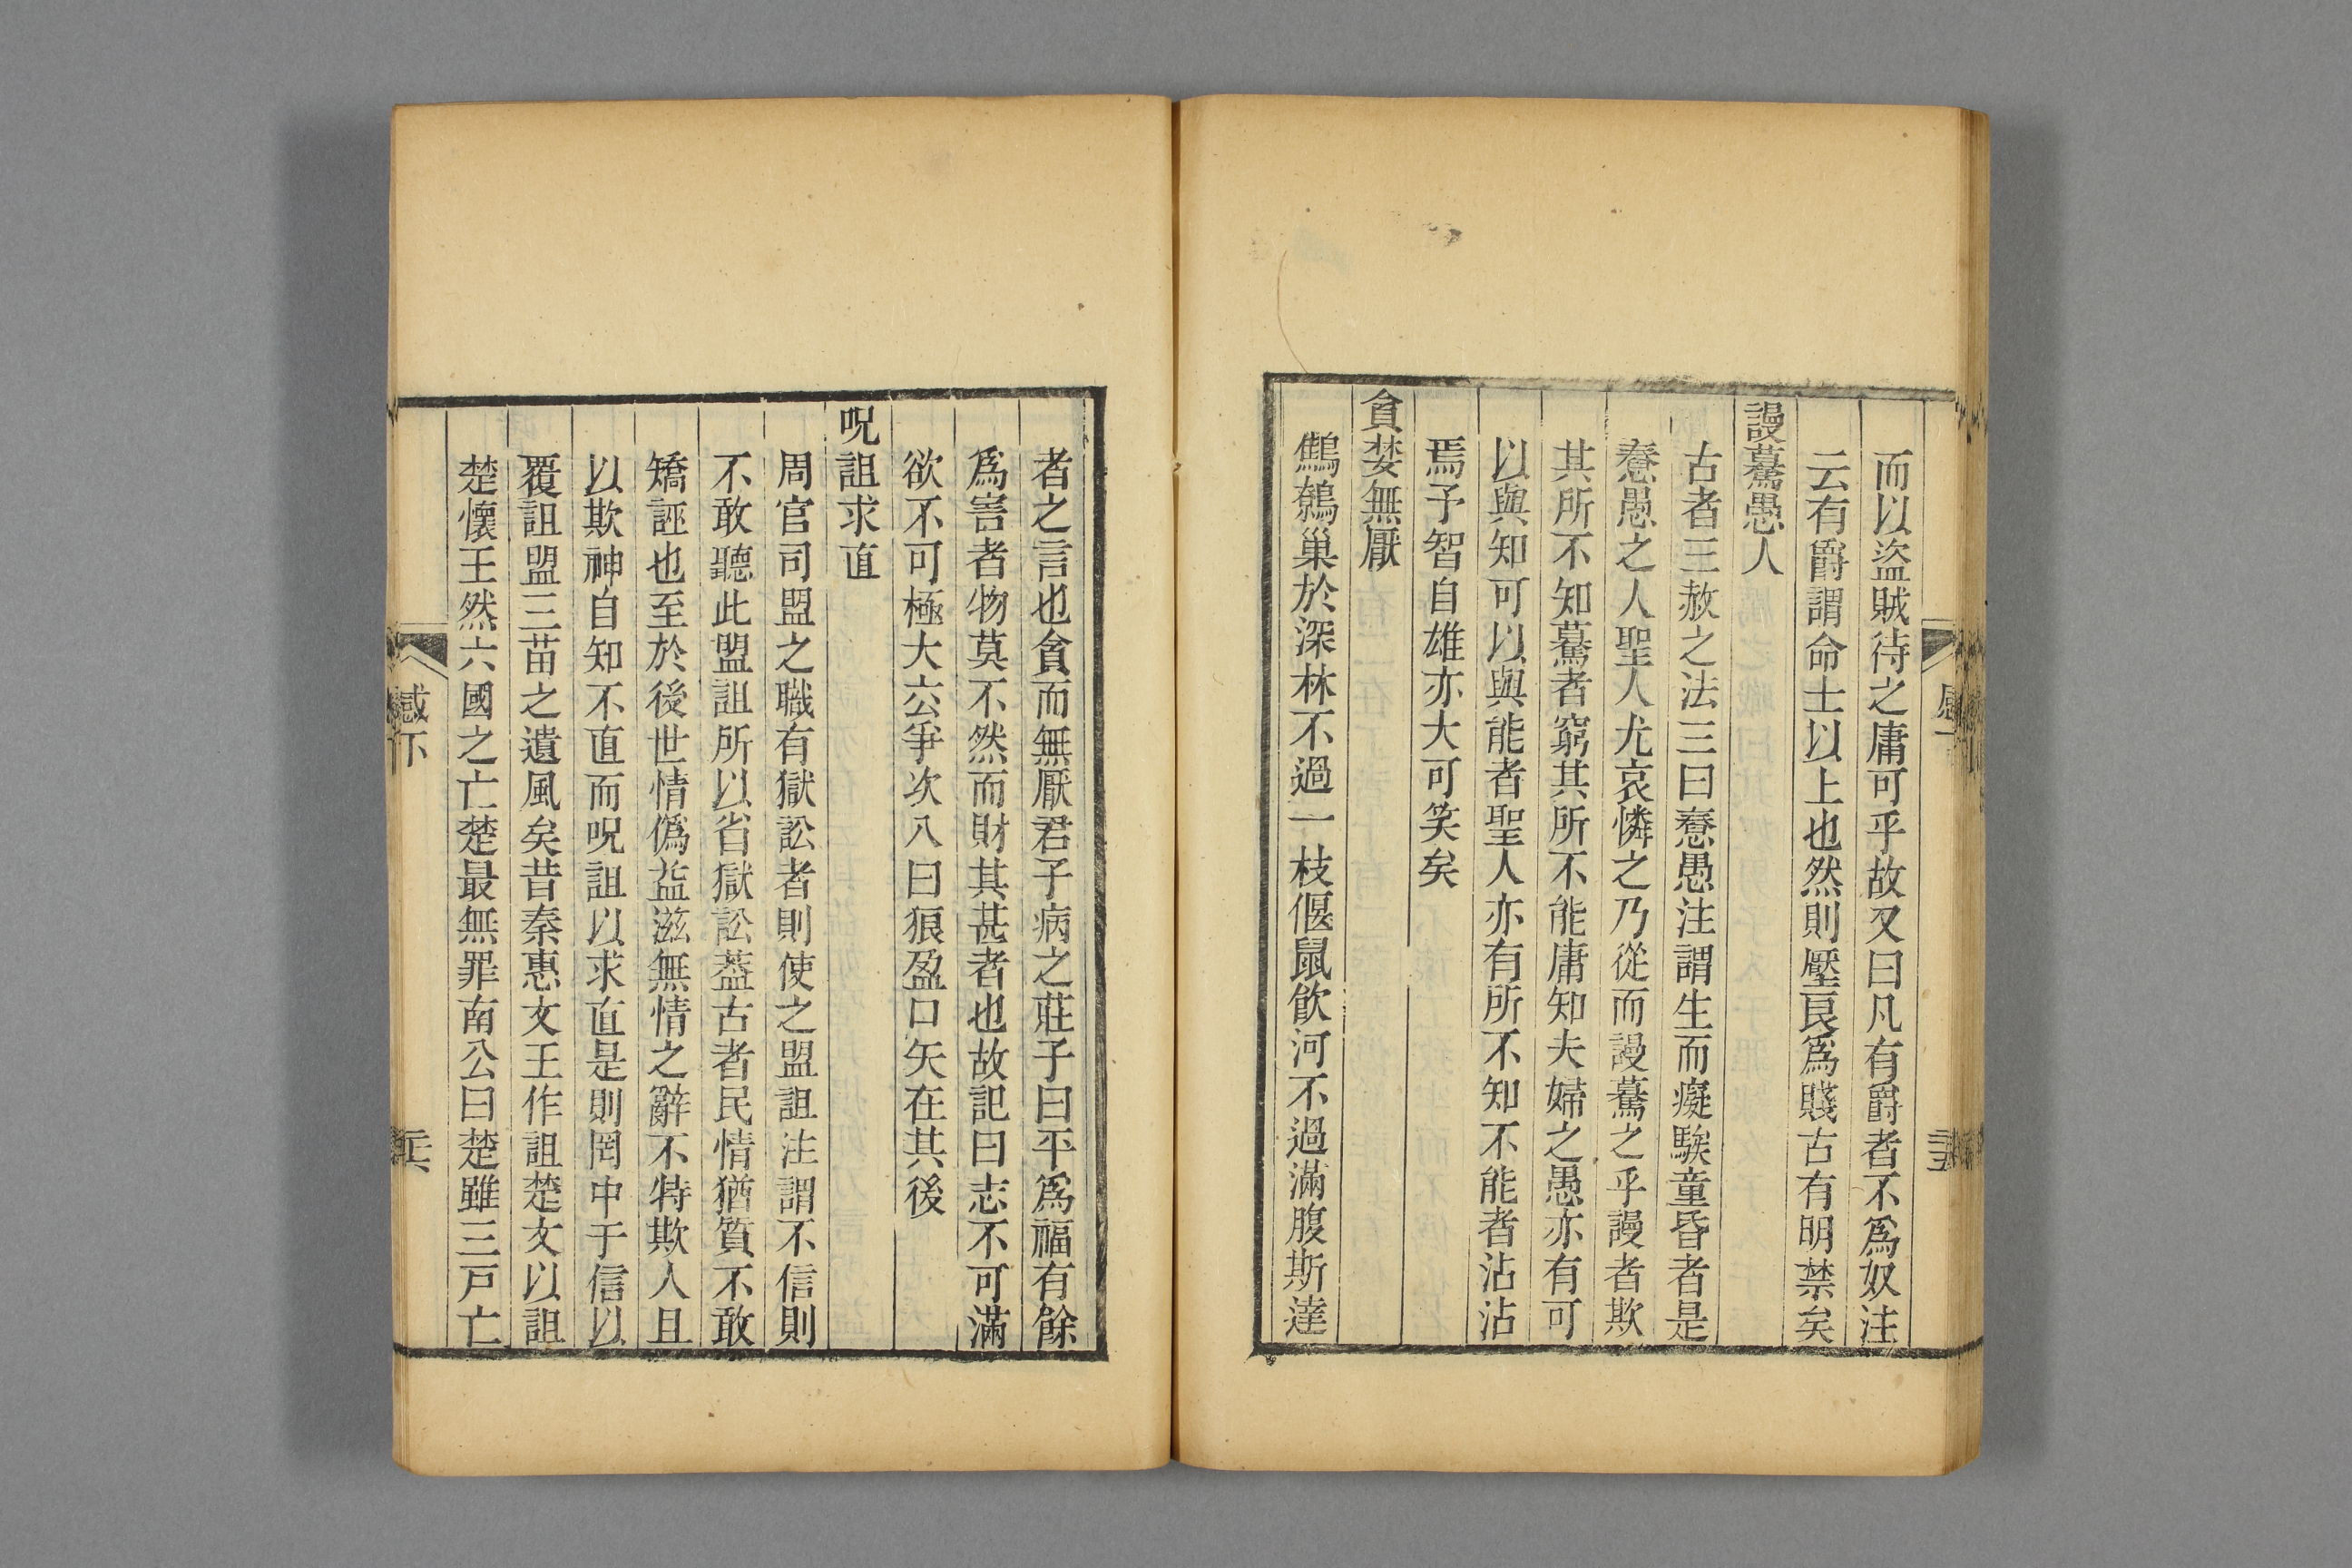 而以盜賊待之庸可乎故又曰凡有爵者不爲奴注
云有爵謂命士以上也然則壓良爲賤古有明禁矣
謾驀愚人
古者三赦之法三曰憃愚注謂生而癡騃童昏者是
憃愚之人聖人尤哀憐之乃從而謾驀之乎謾者欺
其所不知驀者窮其所不能庸知夫婦之愚亦有可
以與知可以與能者聖人亦有所不知不能者沾沾
焉予智自雄亦大可笑矣
貪婪無厭
鷦鷯巢於深林不過一枝偃鼠飮河不過滿腹斯達
者之言也貪而無厭君子病之莊子曰平爲福有餘
爲害者物莫不然而財其甚者也故記曰志不可滿
欲不可極大六爭次八曰狼盈口矢在其後
呪詛求直
周官司盟之職有獄訟者則使之盟詛注謂不信則
不敢聽此盟詛所以省獄訟葢古者民情猶質不敢
矯誣也至於後世情僞益滋無情之辭不特欺人且
以欺神自知不直而呪詛以求直是則罔中于信以
覆詛盟三苗之遺風矣昔秦惠文王作詛楚文以詛
楚懷王然六國之亡楚最無罪南公曰楚雖三戸亡
感下